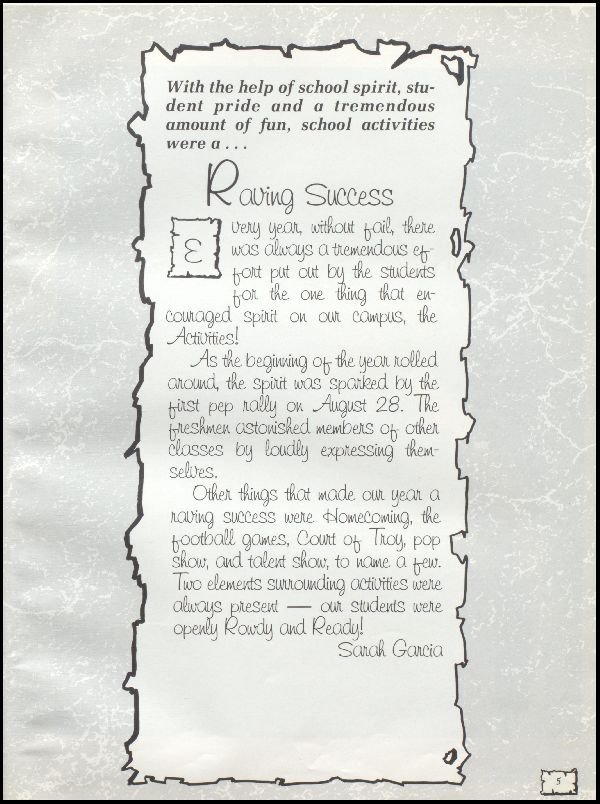 With the help of school spirit, stu-
dent pride and a tremendous
amount of fun, school activities
were a . . .
Raving Success
Every year, without fail, there
was always a tremendous ef-
fort put out by the students
for the one thing that en-
couraged spirit on our campus, the
Activities!
As the beginning of the year rolled
around, the spirit was sparked by the
first pep rally on August 28. The
freshmen astonished members of other
classes by loudly expressing them-
selves.
Other things that made our year a
raving success were Homecoming, the
football games, Court of Troy, pop
show, and talent show, to name a few.
Two elements surrounding activities were
always present — our students were
openly Rowdy and Ready!
Sarah Garcia
5